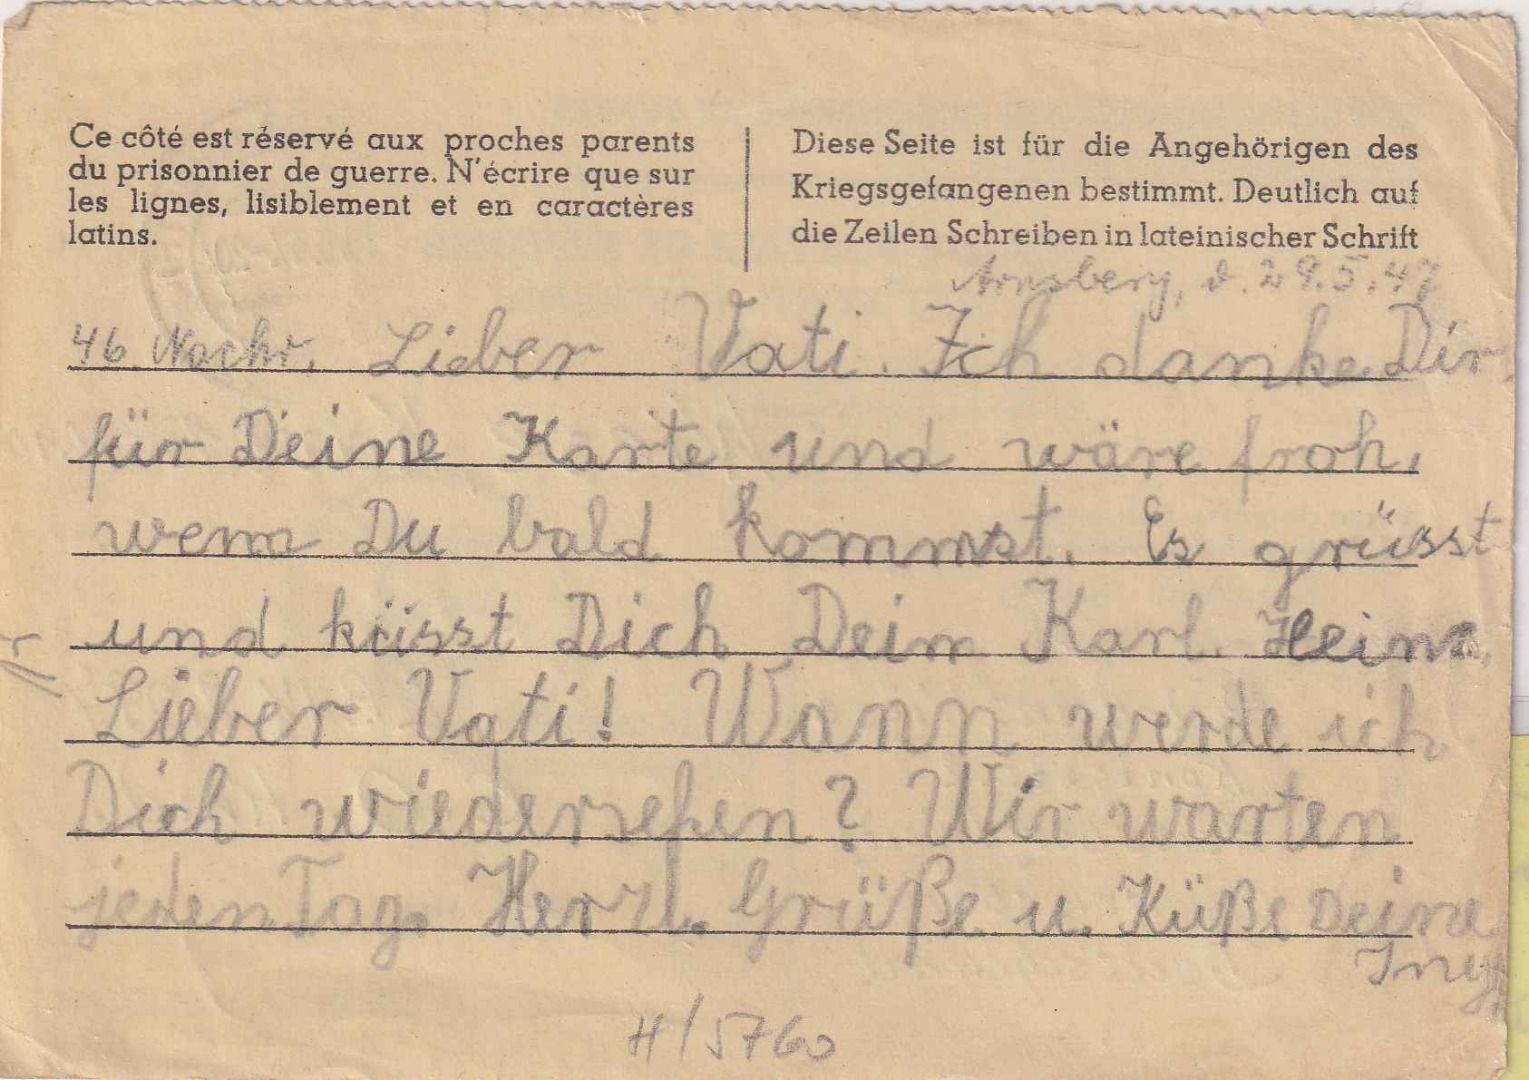 Ce côté est réservé aux proches parents
du prisonnier de guerre. N'écrire que sur
les lignes, lisiblement et en caractères
latins.
Diese Seite ist für die Angehörigen des
Kriegsgefangenen bestimmt. Deutlich auf
die Zeilen Schreiben in lateinischer Schrift
Arnsberg, d. 29.5.47
46. Nachr. Lieber Vati. Ich danke Dir
für Deine Karte und wäre froh,
wenn Du bald kommst. Es grüsst
und küsst Dich Dein Karl Heinz.
Lieber Vati! Wann werde ich
Dich wiedersehen? Wir warten
jeden Tag. Herzl. Grüße u. Küße Deine
Inge
H/5760